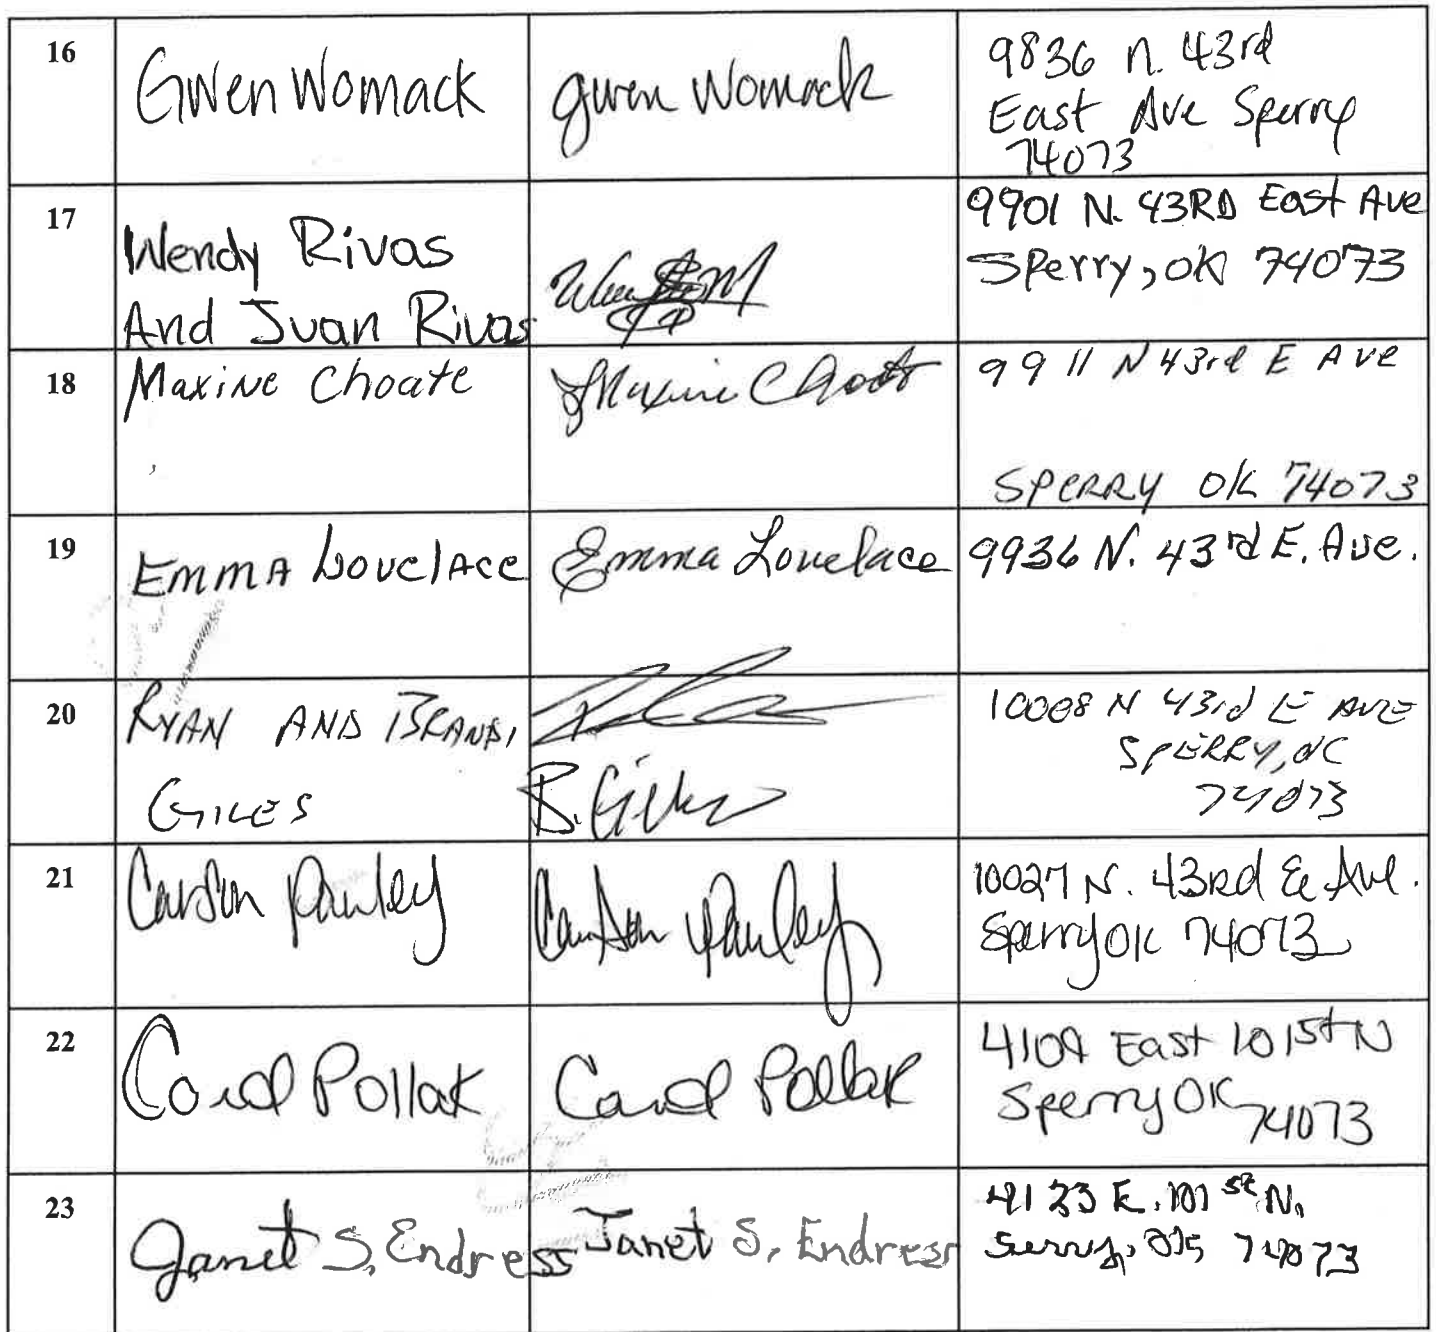 16 Gwen Womack Gwen Womack 9836 N. 43rd
East Ave Sperry
74073
17 Wendy Rivas 9901 N. 43RD East Ave
And Juan Rivas Sperry, OK 74073
18 Maxine Choate Maxine Choate 9911 N 43rd E Ave
SPERRY OK 74073
19 EMMA Lovelace Emma Lovelace 9936 N. 43rd E. Ave.
20 RYAN AND BRANDI 10008 N 43rd E AVE
GILES B. Giles SPERRY, OK
74073
21 Carson Pauley Carson Pauley 10027 N. 43rd E Ave.
Sperry OK 74073
22 Carol Pollak Carol Pollak 4109 East 101st N
Sperry OK 74073
23 Janet S. Endress Janet S. Endress 4123 E. 101st N.
74073